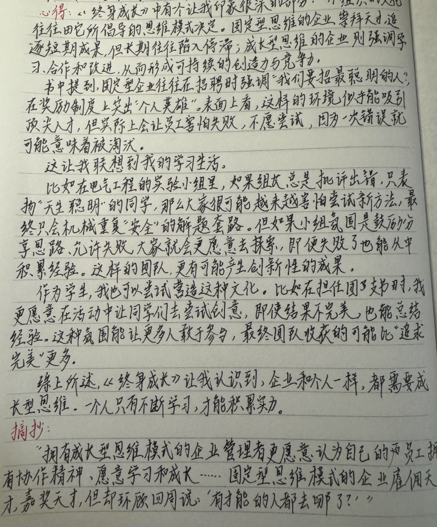 心得：《终身成长》中有个让我印象很深的部分：
往往由它所倡导的思维模式决定。固定型思维的企业，崇拜天才，追
逐短期成果，但长期往往陷入停滞；成长型思维的企业则强调学
习、合作和改进，从而形成可持续的创造力与竞争力。
书中提到，固定型企业往往在招聘时强调"我们要招最聪明的人"，
在奖励制度上突出"个人英雄"。表面上看，这样的环境似乎能吸引
顶尖人才，但实际上会让员工害怕失败，不愿尝试，因为一次错误就
可能意味着被淘汰。
这让我联想到我的学习生活。
比如在电气工程的实验小组里，如果组长总是批评出错，只表
扬"天生聪明"的同学，那么大家很可能越来越害怕尝试新方法，最
终只会机械重复"安全"的解题套路。但如果小组氛围是鼓励分
享思路、允许失败，大家就会更愿意去探索，即便失败了也能从中
积累经验。这样的团队，更有可能产生创新性的成果。
作为学生，我也可以尝试营造这种文化。比如在担任团支书时，我
更愿意在活动中让同学们去尝试创意，即使结果不完美，也能总结
经验。这种氛围能让更多人敢于参与，最终团队收获的可能比"追求
完美"更多。
综上所述，《终身成长》让我认识到，企业和个人一样，都需要成
长型思维。一个人只有不断学习，才能积累实力。
摘抄：
"拥有成长型思维模式的企业管理者更愿意认为自己的员工拥
有协作精神、愿意学习和成长……固定型思维模式的企业雇佣天
才，嘉奖天才，但却环顾四周说，'有才能的人都去哪了？'"